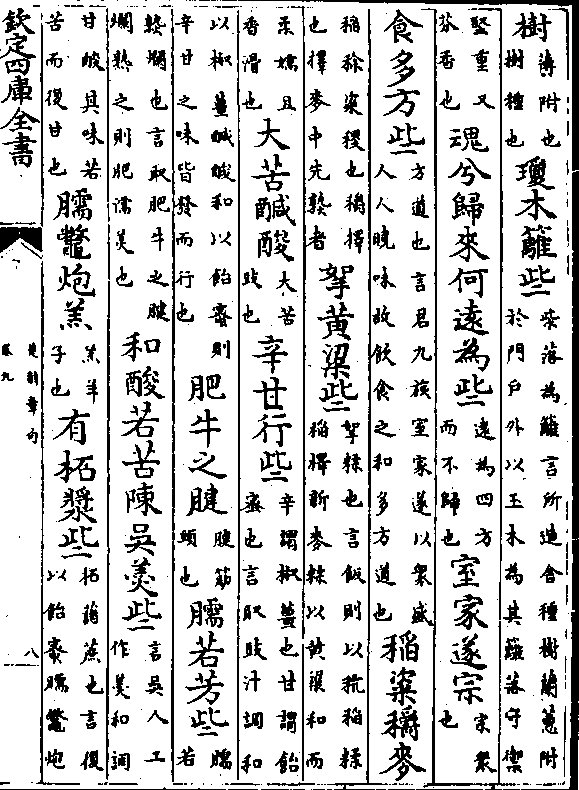 樹薄附也樹種也瓊木籬些柴落為籬言所造舍種樹蘭蕙附於門戶外以玉木為其籬落守禦
堅重又芬香也魂兮歸來何遠為些遠為四方而不歸也室家遂宗宗衆也
食多方些方道也言君九族室家遂以衆盛人人曉味故飲食之和多方道也稻粢穱麥
稻稌粢稷也穱擇也擇麥中先熟者挐黄粱些挐糅也言飯則以秔稻糅稻擇新麥糅以黄粱和而
柔嬬且香滑也大苦醎酸大苦豉也辛甘行些辛謂椒薑也甘謂飴蜜也言取豉汁調和
以椒薑醎酸和以飴蜜則辛甘之味皆發而行也肥牛之腱腱筋頭也臑若芳些臑若
熟爛也言取肥牛之腱爛熟之則肥濡美也和酸若苦陳吳羮些言吳人工作羮和調
甘酸其味若苦而復甘也臑鼈炮羔羔羊子也有柘漿些柘藷蔗也言復以飴蜜臑鼈炮
欽定四庫全書
楚辭章句
卷九
八